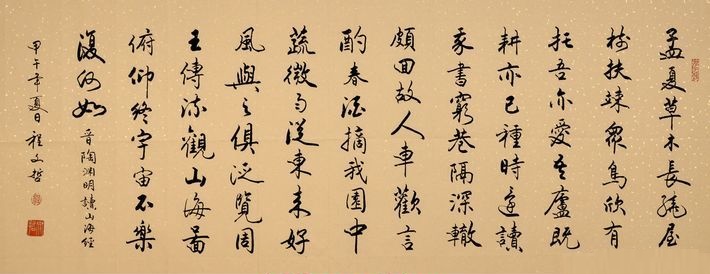 孟夏草木長繞屋
樹扶疎眾鳥欣有
托吾亦愛吾廬既
耕亦已種時還讀
我書窮巷隔深轍
頗回故人車歡言
酌春酒摘我園中
蔬微雨從東來好
風與之俱泛覽周
王傳流觀山海圖
俯仰終宇宙不樂
復何如 晉陶淵明讀山海經
甲午年夏日程文哲